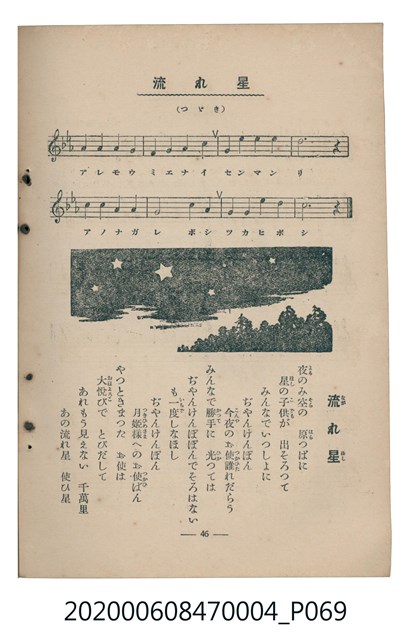 流れ星
(つゞき)
アレモウミエナイセンマンリ
アノナガレボシツカヒボシ
流れ星
夜のみ空の 原つぱに
星の子供が 出そろつて
みんなでいつしよに
ぢやんけんぽん
今夜のお使誰れだらう
みんなで勝手に 光つては
ぢやんけんぽんぽんでそろはない
も一度しなほし
ぢやんけんぽん
月姫樣へのお使ばん
やつときまつた お使は
大悅びで とびだして
あれもう見えない 千萬里
あの流れ星 使ひ星
— 46 —
202000608470004_P069